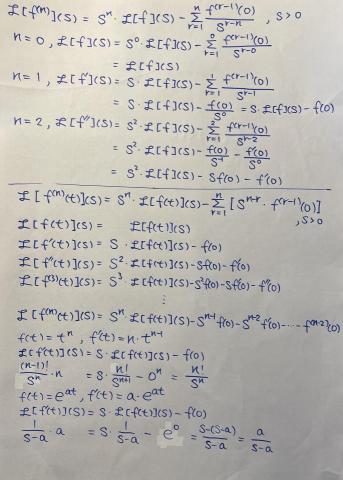 ℒ[f⁽ⁿ⁾](s) = sⁿ · ℒ[f](s) − Σ_{r=1}^{n} f⁽ʳ⁻¹⁾(0)/s^{r−n} , s>0
n=0, ℒ[f](s) = s⁰ · ℒ[f](s) − Σ_{r=1}^{0} f⁽ʳ⁻¹⁾(0)/s^{r−0}
= ℒ[f](s)
n=1, ℒ[f'](s) = s · ℒ[f](s) − Σ_{r=1}^{1} f⁽ʳ⁻¹⁾(0)/s^{r−1}
= s · ℒ[f](s) − f(0)/s⁰ = s · ℒ[f](s) − f(0)
n=2, ℒ[f''](s) = s² · ℒ[f](s) − Σ_{r=1}^{2} f⁽ʳ⁻¹⁾(0)/s^{r−2}
= s² · ℒ[f](s) − f(0)/s⁻¹ − f'(0)/s⁰
= s² · ℒ[f](s) − sf(0) − f'(0)
ℒ[f⁽ⁿ⁾(t)](s) = sⁿ · ℒ[f(t)](s) − Σ_{r=1}^{n} [s^{n−r} · f⁽ʳ⁻¹⁾(0)] , s>0
ℒ[f(t)](s) = ℒ[f(t)](s)
ℒ[f'(t)](s) = s · ℒ[f(t)](s) − f(0)
ℒ[f''(t)](s) = s² · ℒ[f(t)](s) − sf(0) − f'(0)
ℒ[f⁽³⁾(t)](s) = s³ · ℒ[f(t)](s) − s²f(0) − sf'(0) − f''(0)
⋮
ℒ[f⁽ⁿ⁾(t)](s) = sⁿ · ℒ[f(t)](s) − sⁿ⁻¹f(0) − sⁿ⁻²f'(0) − ⋯ − f⁽ⁿ⁻²⁾(0)
f(t) = tⁿ, f'(t) = n · tⁿ⁻¹
ℒ[f'(t)](s) = s · ℒ[f(t)](s) − f(0)
(n−1)!/sⁿ · n = s · n!/sⁿ⁺¹ − 0ⁿ = n!/sⁿ
f(t) = e^{at}, f'(t) = a · e^{at}
ℒ[f'(t)](s) = s · ℒ[f(t)](s) − f(0)
1/(s−a) · a = s · 1/(s−a) − e⁰ = (s−(s−a))/(s−a) = a/(s−a)